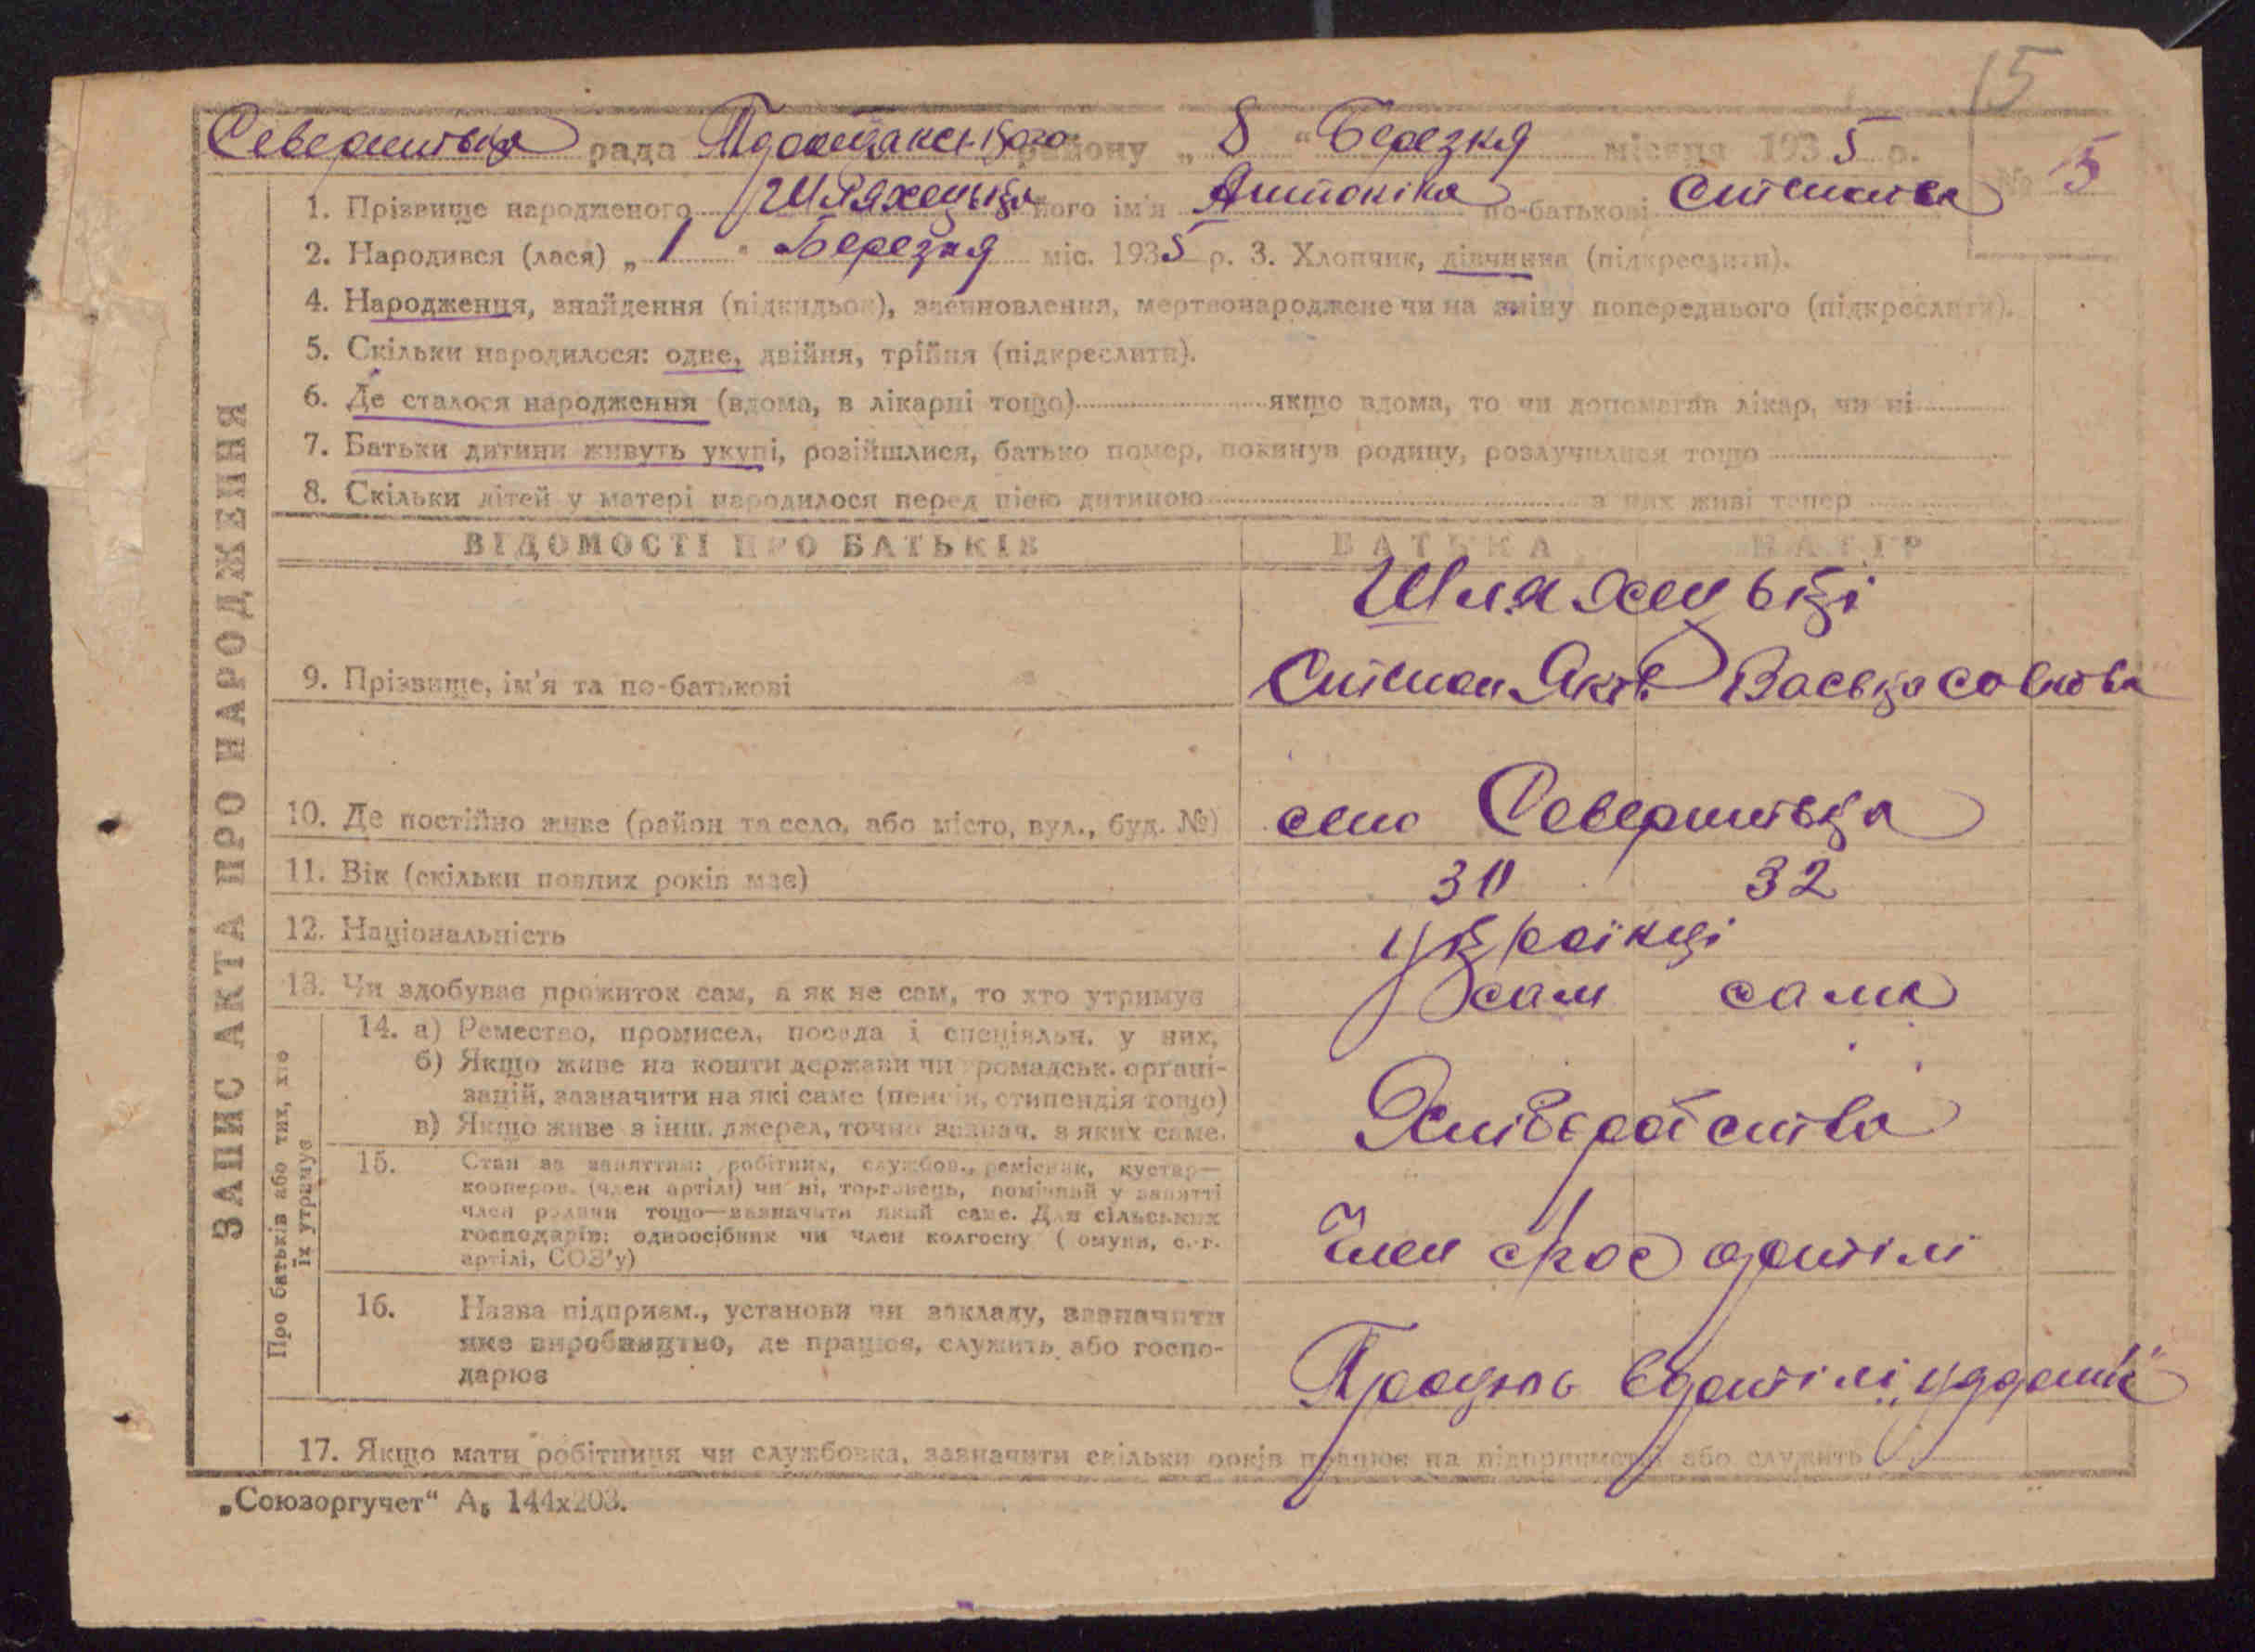 15
Северинівка рада Тростянецького району „ 8 “ Березня місяця 1935 р. № 15
1. Прізвище народженого Шляхецька його ім'я Антоніна по-батькові Степанова
2. Народився (лася) „ 1 “ Березня міс. 1935 р. 3. Хлопчик, дівчинка (підкреслити).
4. Народження, знайдення (підкидьок), засиновлення, мертвонароджене чи на зміну попереднього (підкреслити).
5. Скільки народилося: одне, двійня, трійня (підкреслити).
6. Де сталося народження (вдома, в лікарні тощо) якщо вдома, то чи допомагав лікар, чи ні
7. Батьки дитини живуть укупі, розійшлися, батько помер, покинув родину, розлучилися тощо
8. Скільки дітей у матері народилося перед цією дитиною з них живі тепер
ЗАПИС АКТА ПРО НАРОДЖЕННЯ
ВІДОМОСТІ ПРО БАТЬКІВ БАТЬКА МАТІР
Шляхецькі
9. Прізвище, ім'я та по-батькові Степан Яків
10. Де постійно живе (район та село, або місто, вул., буд. №) село Северинівка
11. Вік (скільки повних років має) 30 32
12. Національність українці
13. Чи здобуває прожиток сам, а як не сам, то хто утримує сам сама
Про батьків або тих, хто їх утримує
14. а) Ремество, промисел, посада і спеціяльн. у них,
б) Якщо живе на кошти держави чи громадськ. органі-
зацій, зазначити на які саме (пенсія, стипендія тощо)
в) Якщо живе з інш. джерел, точно зазнач. з яких саме.
Хліборобство
15. Стан за заняттям: робітник, службов., ремісник, кустар—
кооперов. (член артілі) чи ні, торговець, помічний у занятті
член родини тощо—зазначити який саме. Для сільських
господарів: одноосібник чи член колгоспу ( омуни, с.-г.
артілі, СОЗ'у)
Член артілі
16. Назва підприєм., установи чи закладу, зазначити
яке виробництво, де працює, служить або госпо-
дарює
Працює в артілі
17. Якщо мати робітниця чи службовка, зазначити скільки років працює на підприємстві або служить
„Союзоргучет“ А₅ 144х203.